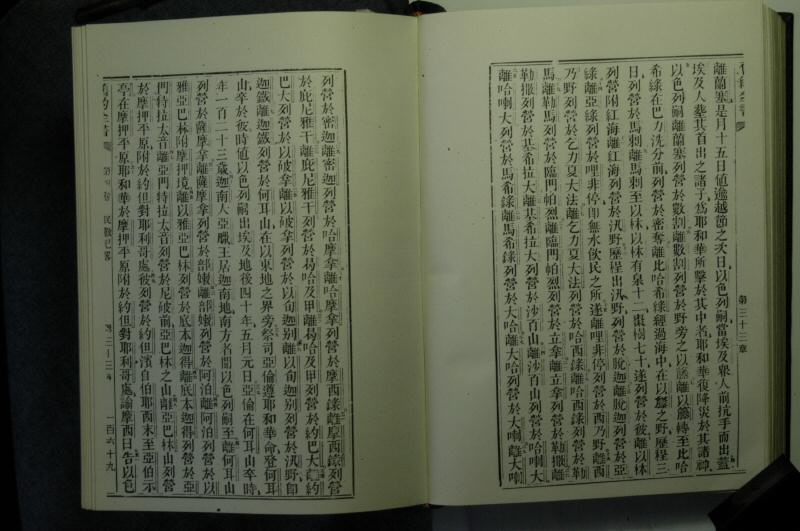 離蘭塞是月十五日値逾越節之次日以色列嗣當埃及衆人前抗手而出蓋
埃及人塟其首出之諸子爲耶和華所擊於其中者耶和華復降災於其諸神
以色列嗣離蘭塞列營於數割離數割列營於野旁之以離以轉至比哈
希錄在巴力洗分前列營於密奪離比哈希錄經過海中在以之野歷程三
日列營於馬剌離馬剌至以林以林有泉十二棗樹七十遂列營於彼離以林
列營附紅海離紅海列營於汛野歷程出汛野列營於脫迦離脫迦列營於亞
綠離亞綠列營於哩非停即無水飲民之所遂離哩非停列營於西乃野離西
乃野列營於乞力夏大法離乞力夏大法列營於哈西錄離哈西錄列營於勒
馬離勒馬列營於臨門帕烈離臨門帕烈列營於立拿離立拿列營於勒撒離
勒撒列營於基希拉大離基希拉大列營於沙百山離沙百山列營於哈喇大
離哈喇大列營於馬希錄離馬希錄列營於大哈離大哈列營於大喇離大喇
第三十三章
列營於密迦離密迦列營於哈摩拿離哈摩拿列營於摩西錄離摩西錄列營
於庇尼雅干離庇尼雅干列營於曷哈及甲離曷哈及甲列營於約巴大離約
巴大列營於以破拿離以破拿列營於以旬迦別離以旬迦別列營於汛野即
迦鐵離迦鐵列營於何耳山在以東地之界旁祭司亞倫遵耶和華命登何耳
山卒於彼時値以色列嗣出埃及地後四十年五月元日亞倫在何耳山卒時
年一百二十三歲迦南人亞臘王居迦南地南方者聞以色列嗣至離何耳山
列營於薩摩拿離薩摩拿列營於部嫩離部嫩列營於阿泊離阿泊列營於以
雅亞巴林附摩押境離以雅亞巴林列營於底本迦得離底本迦得列營於亞
門特拉太音離亞門特拉太音列營於尼破前亞巴林之山離亞巴林山列營
於摩押平原附於約但對耶利哥處彼列營於約但濱自伯耶西末至亞伯示
亭在摩押平原耶和華於摩押平原附於約但對耶利哥處諭摩西曰告以色
民數記畧
一百六十九